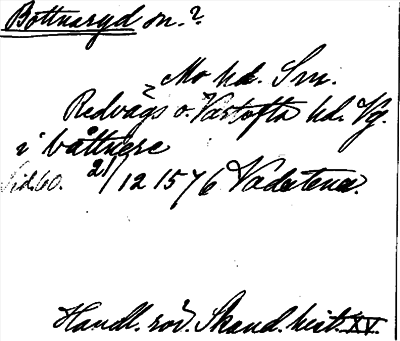 Bottnaryd sn.?
Mo hd. Sm.
Redvägs o. Vartofta hd. Vg.
i båttnere
Sid. 60. 21/12 1576 Vadstena.
Handl. rör. Skand. hist. XV.